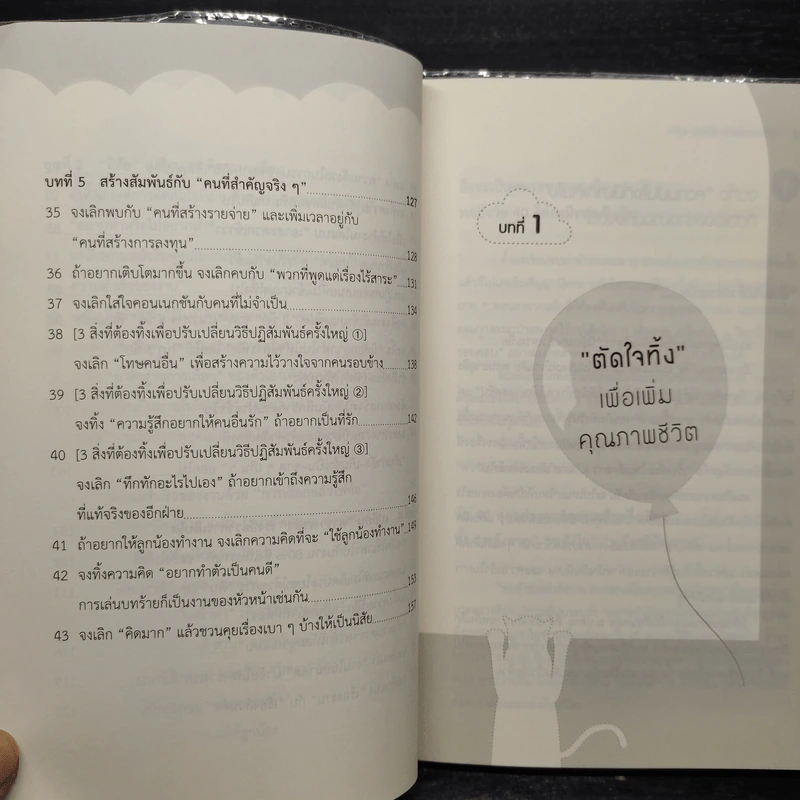 บทที่ 5 สร้างสัมพันธ์กับ “คนที่สำคัญจริง ๆ” 127
35 จงเลิกพบกับ “คนที่สร้างรายจ่าย” และเพิ่มเวลาอยู่กับ
“คนที่สร้างการลงทุน” 128
36 ถ้าอยากเติบโตมากขึ้น จงเลิกคบกับ “พวกที่พูดแต่เรื่องไร้สาระ” 131
37 จงเลิกใส่ใจคอนเนกชันกับคนที่ไม่จำเป็น 134
38 [3 สิ่งที่ต้องทิ้งเพื่อปรับเปลี่ยนวิธีปฏิสัมพันธ์ครั้งใหญ่ ①]
จงเลิก “โทษคนอื่น” เพื่อสร้างความไว้วางใจจากคนรอบข้าง 138
39 [3 สิ่งที่ต้องทิ้งเพื่อปรับเปลี่ยนวิธีปฏิสัมพันธ์ครั้งใหญ่ ②]
จงทิ้ง “ความรู้สึกอยากให้คนอื่นรัก” ถ้าอยากเป็นที่รัก 142
40 [3 สิ่งที่ต้องทิ้งเพื่อปรับเปลี่ยนวิธีปฏิสัมพันธ์ครั้งใหญ่ ③]
จงเลิก “ทึกทักอะไรไปเอง” ถ้าอยากเข้าถึงความรู้สึก
ที่แท้จริงของอีกฝ่าย 146
41 ถ้าอยากให้ลูกน้องทำงาน จงเลิกความคิดที่จะ “ใช้ลูกน้องทำงาน” 149
42 จงทิ้งความคิด “อยากทำตัวเป็นคนดี”
การเล่นบทร้ายก็เป็นงานของหัวหน้าเช่นกัน 153
43 จงเลิก “คิดมาก” แล้วชวนคุยเรื่องเบา ๆ บ้างให้เป็นนิสัย 157
บทที่ 1
"ตัดใจทิ้ง"
เพื่อเพิ่ม
คุณภาพชีวิต